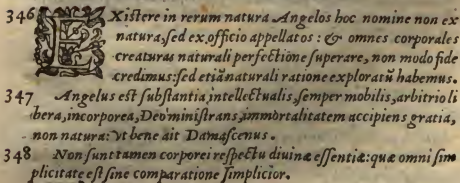 346 EXistere in rerum natura Angelos hoc nomine non ex
natura, sed ex officio appellatos: & omnes corporales
creaturas naturali perfectione superare, non modo fide
credimus: sed etiã naturali ratione exploratũ habemus.
347 Angelus est substantia, intellectualis, semper mobilis, arbitrio li
bera, incorporea, Deo ministrans, immortalitatem accipiens gratia,
non natura: vt bene ait Damascenus.
348 Non sunt tamen corporei respectu diuinæ essentiæ: quæ omni sim
plicitate est sine comparatione simplicior.